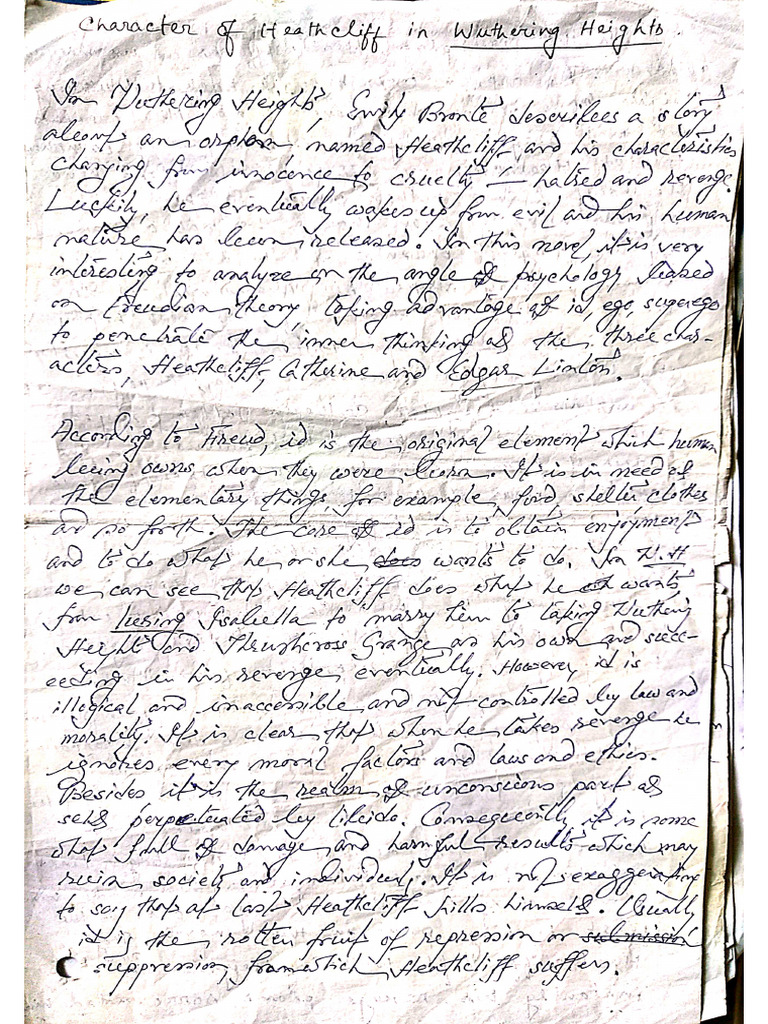 Character of Heathcliff in Wuthering Heights.
In Wuthering Heights, Emily Bronte describes a story
about an orphan named Heathcliff and his characteristics
changing from innocence to cruelty – hatred and revenge.
Luckily, he eventually wakes up from evil and his human
nature has been released. In this novel, it is very
interesting to analyze on the angle of psychology based
on Freudian theory, taking advantage of id, ego, superego
to penetrate the inner thinking of the three char-
acters, Heathcliff, Catherine and Edgar Linton.
According to Freud, id is the original element which human
being owns when they were born. It is in need of
the elementary things, for example, food, shelter, clothes
and so forth. The core of id is to obtain enjoyment
and to do what he or she does wants to do. In W.H
we can see that Heathcliff does what he wants
from luring Isabella to marry him to taking Wuthering
Height and Thrushcross Grange as his own and succ-
eeding in his revenge eventually. However, id is
illogical and inaccessible and not controlled by law and
morality. It is clear that when he takes revenge he
ignores every moral factors and laws and ethics.
Besides it is the realm of unconscious part of
self perpetuated by libido. Consequently, it is some
what full of damage and harmful results which may
ruin society and individuals. It is not exaggerating
to say that at last Heathcliff kills himself. Usually
id is the rotten fruit of repression or submission
suppression, from which Heathcliff suffers.